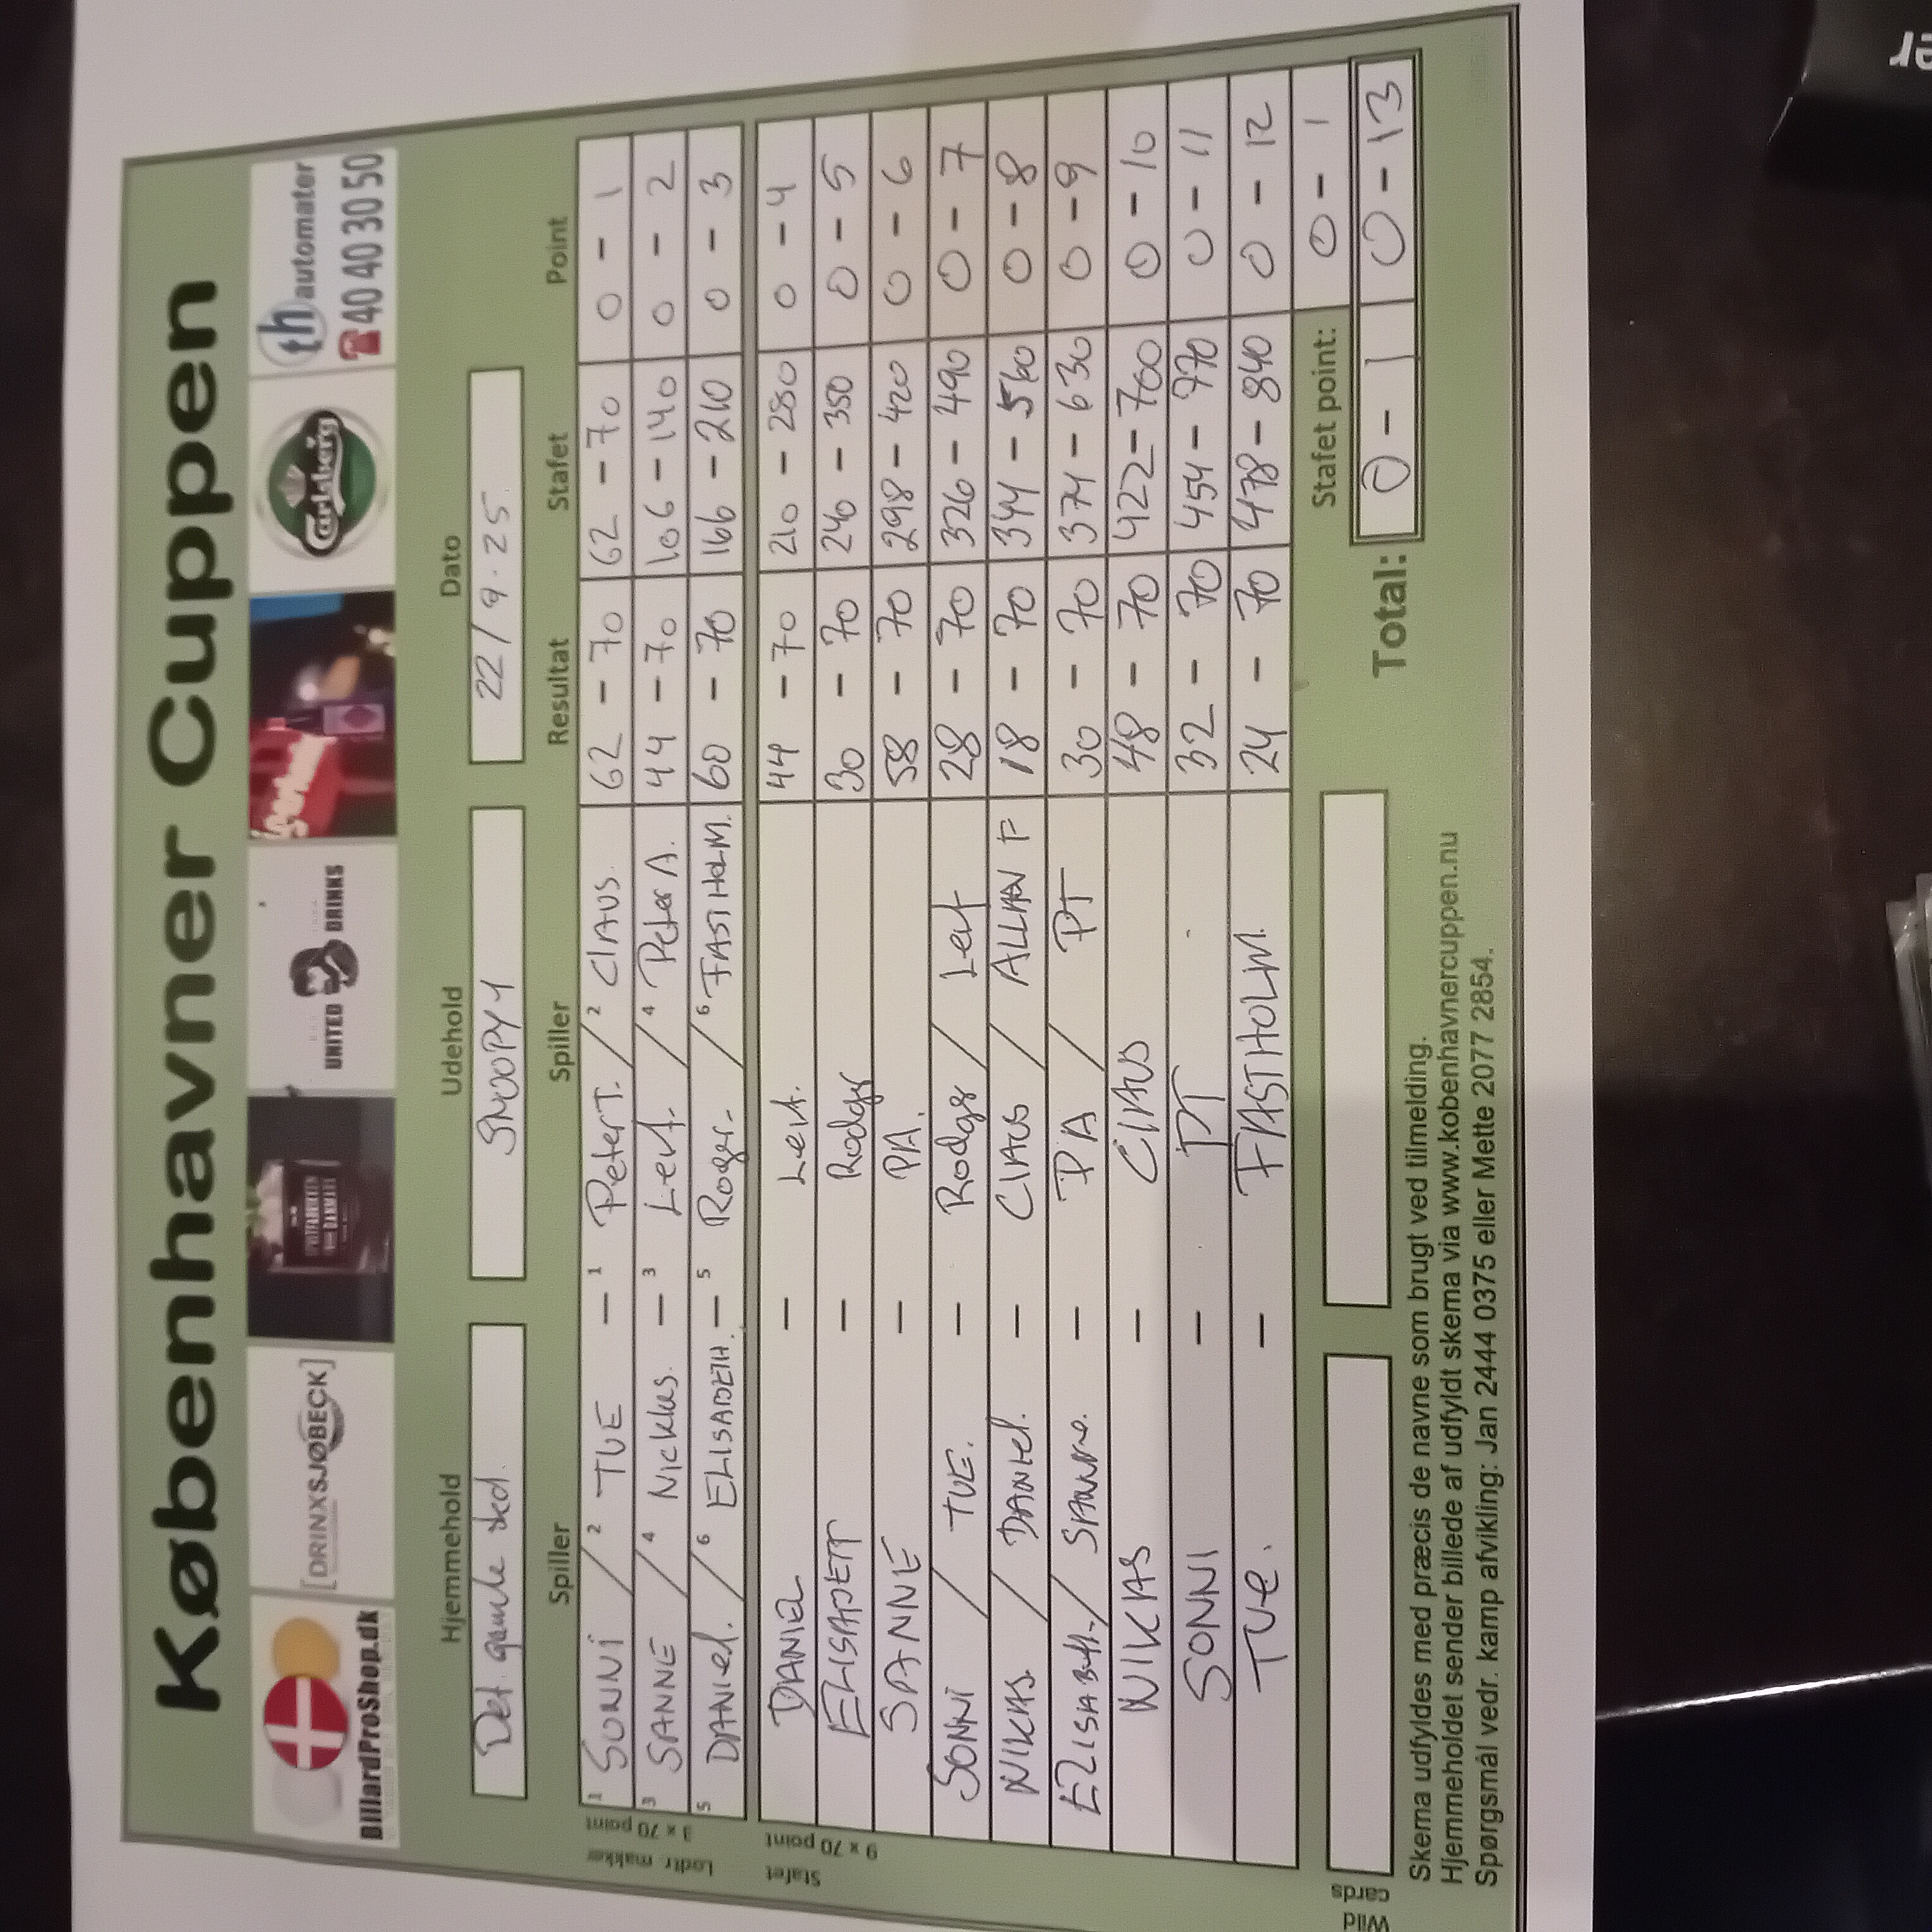 Københavner Cuppen
BillardProShop.dk
[DRINXSJØBECK]
UNITED DRINKS
Carlsberg
th automater
☎ 40 40 30 50
Hjemmehold Udehold Dato
Det gamle sted. SNOOPY 1 22/9.25
Spiller Spiller Resultat Stafet Point
Lodtr. makker
3 x 70 point
1 SONNI / 2 TUE - 1 Peter T. / 2 CLAUS. 62 - 70 62 - 70 0 - 1
3 SANNE / 4 Nicklas. - 3 Leif. / 4 Peter A. 44 - 70 106 - 140 0 - 2
5 DANIEL. / 6 ELISABETH. - 5 Roger. / 6 FASTHOLM. 60 - 70 166 - 210 0 - 3
Stafet
9 x 70 point
DANIEL - Leif. 44 - 70 210 - 280 0 - 4
ELISABETT - Rodger 30 - 70 240 - 350 0 - 5
SANNE - PA. 58 - 70 298 - 420 0 - 6
SONNI / TUE. - Rodger / Leif 28 - 70 326 - 490 0 - 7
NIKAS. / DANIEL. - CLAUS / ALLAN F 18 - 70 344 - 560 0 - 8
ELISABETH. / SANNE. - PA / PT 30 - 70 374 - 630 0 - 9
NIKAS - CLAUS 48 - 70 422 - 700 0 - 10
SONNI - PT 32 - 70 454 - 770 0 - 11
TUE. - FASTHOLM. 24 - 70 478 - 840 0 - 12
Wild cards
Stafet point: 0 - 1
Total: 0 - 1 0 - 13
Skema udfyldes med præcis de navne som brugt ved tilmelding.
Hjemmeholdet sender billede af udfyldt skema via www.kobenhavnercuppen.nu
Spørgsmål vedr. kamp afvikling: Jan 2444 0375 eller Mette 2077 2854.
er